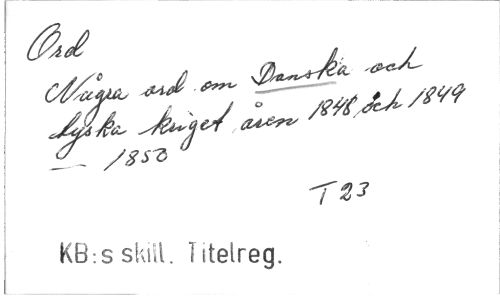 Ord
Några ord om Danska och
tyska kriget åren 1848 och 1849
— 1850
T 23
KB:s skill. Titelreg.